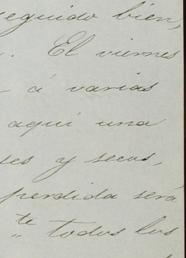 seguido bien,
. El viernes
á varias
aquí una
ses y secas,
perdida será
te todos los